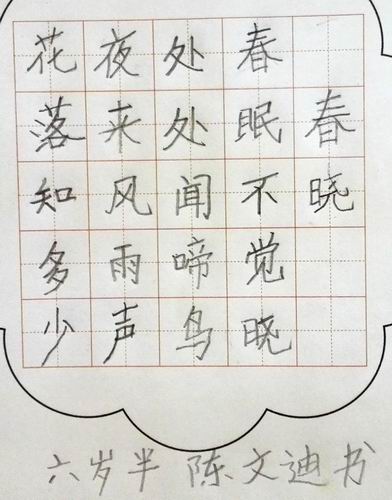 春晓
春眠不觉晓
处处闻啼鸟
夜来风雨声
花落知多少
六岁半 陈文迪书